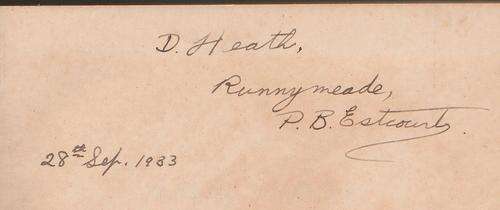 D. Heath,
Runnymeade,
P. B. Estcourt.
28th Sep. 1933